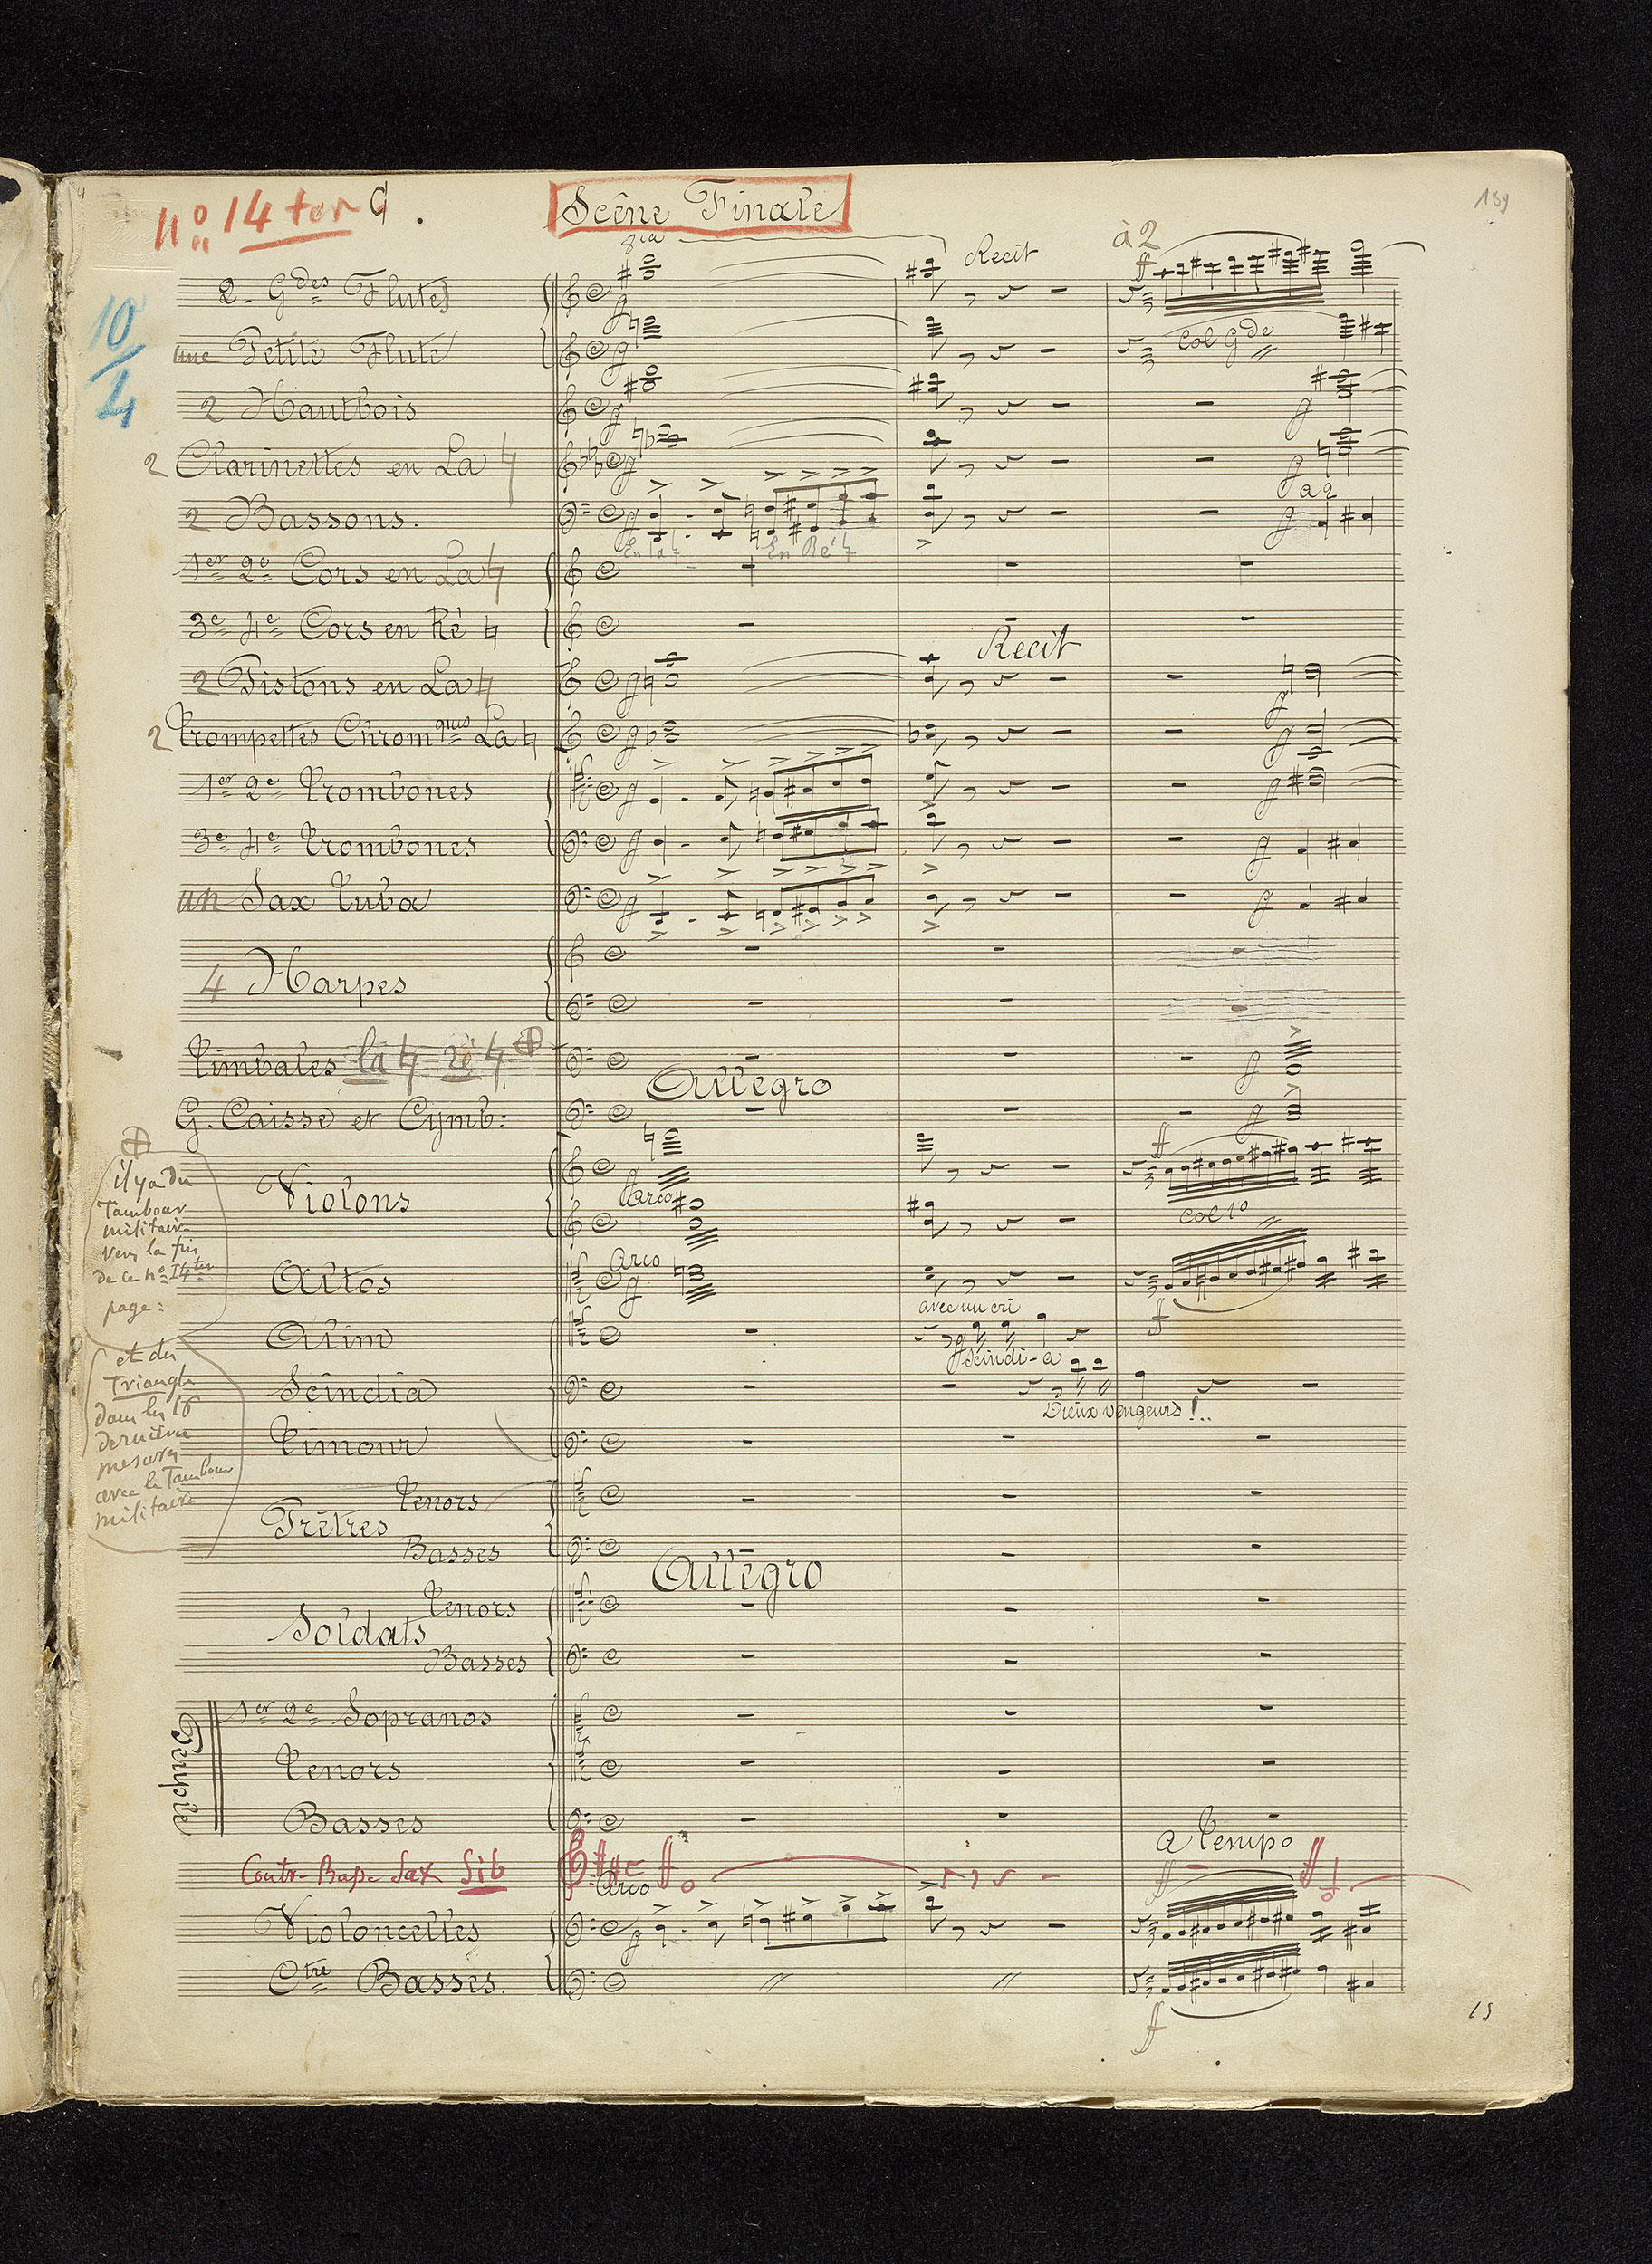 nº 14 ter G.
Scène Finale
169
8va
Recit
à 2
ff
2. Gdes Flutes
10/4
une Petite Flute
Col Gde
2 Hautbois
2 Clarinettes en La ♮
2 Bassons.
a 2
En la ♮
En Ré ♮
1er 2e Cors en La ♮
3e 4e Cors en Ré ♮
Recit
2 Pistons en La ♮
2 Trompettes Chromques La ♮
1er 2e Trombones
3e 4e Trombones
un Sax Tuba
4 Harpes
Timbales la ♮ ré ♮
Allegro
G. Caisse et Cymb:
ff
il y a du
Tambour
militaire
vers la fin
de ce nº 14 ter
page:
Violons
Arco
Col 1º
Arco
Altos
ff
avec un cri
Alim
Scindi-a
et du
Triangle
dans les 16
dernières
mesures
avec le Tambour
militaire
Scindia
Dieux vengeurs!..
Timour
Prêtres
Tenors
Basses
Allegro
Soldats
Tenors
Basses
Peuple
1er 2e Sopranos
Tenors
Basses
a Tempo
Contr-Basse Sax Sib
ff
ff
Arco
ff
Violoncelles
Ctre Basses.
ff
15